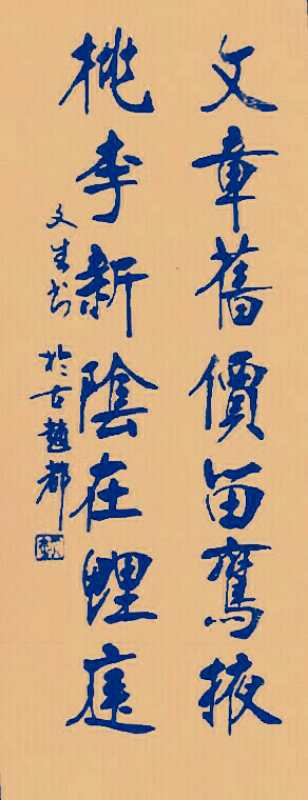 文章舊價留鸞掖
桃李新陰在鯉庭
文生书於古趙都